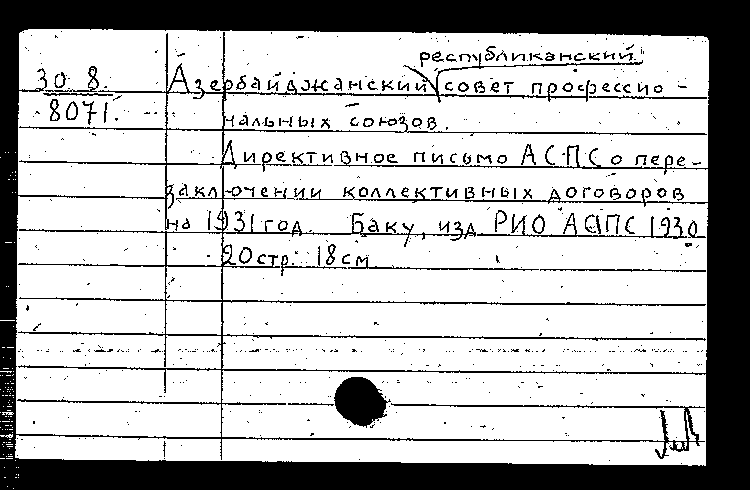 республиканский
30 8. Азербайджанский совет профессио-
8071. нальных союзов.
Директивное письмо АСПС о пере-
заключении коллективных договоров
на 1931 год. Баку, изд РИО АСПС 1930
20 стр. 18 см